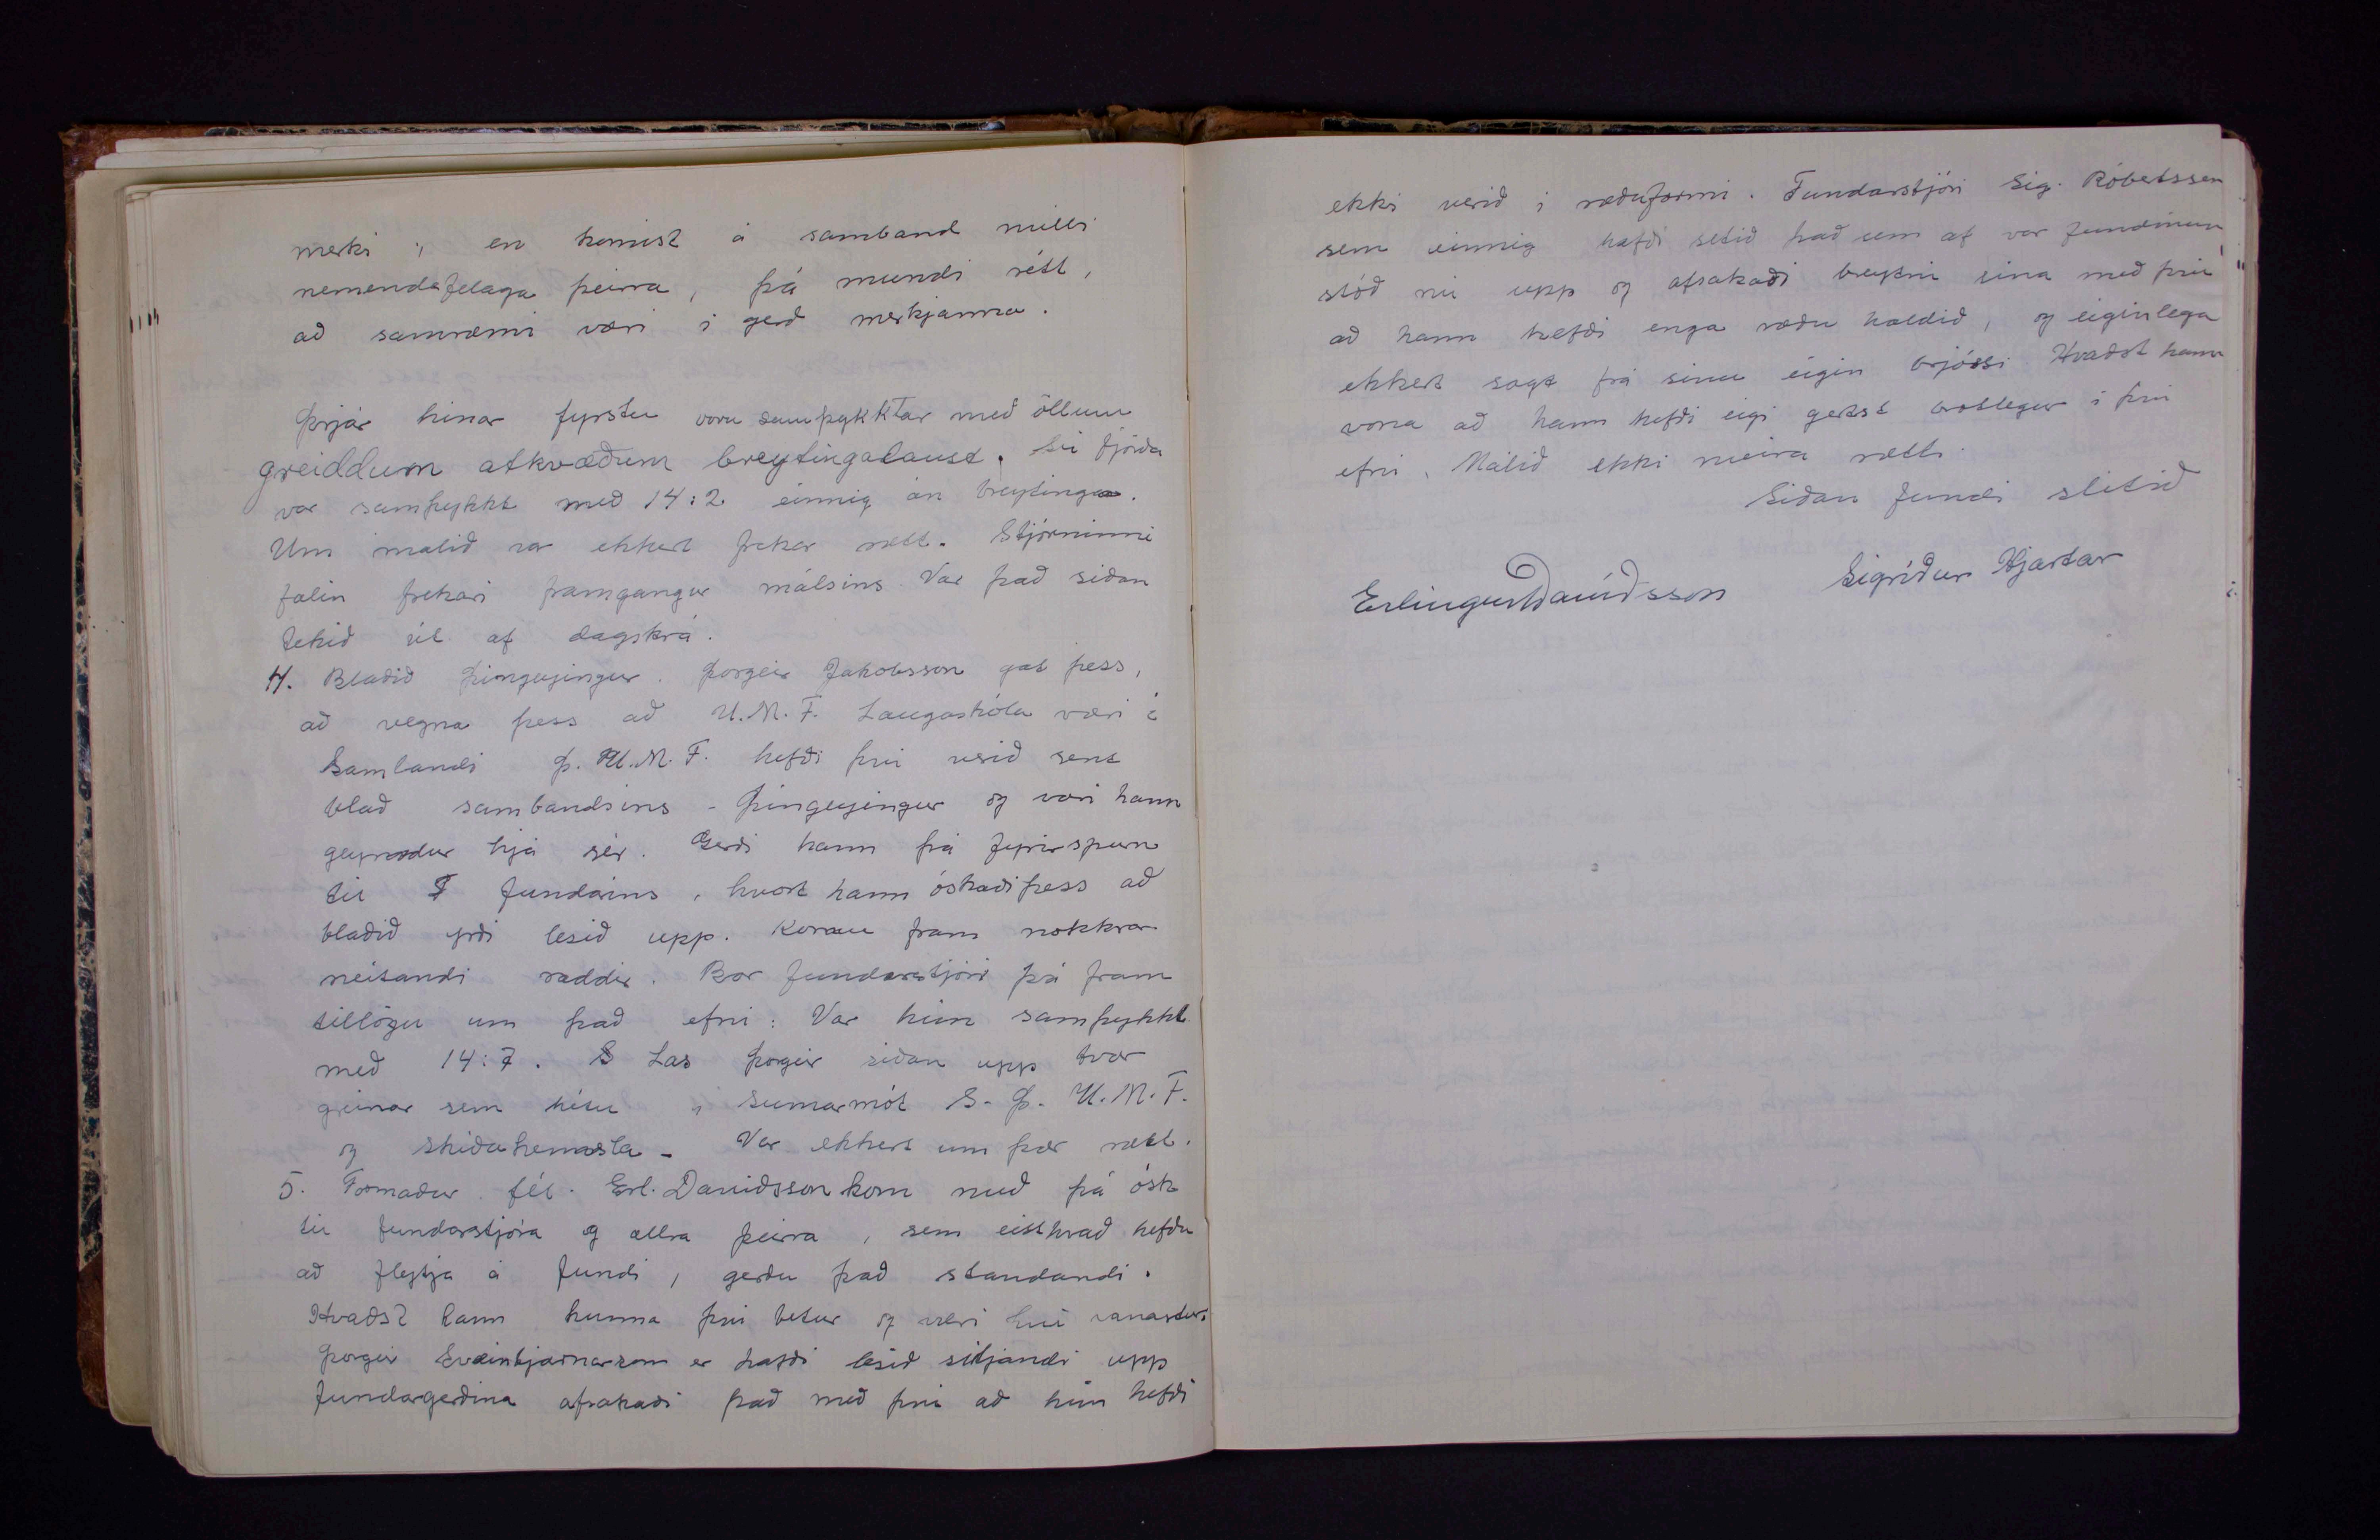 merki, en komist á samband milli
nemendafelaga þeirra, þá mundi rétt,
að samræmi væri i gerð merkjanna.
Þrjár hinar fyrstu voru samþykktar með öllum
greiddum atkvæðum breytingalaust. Sú fjórða
var samþykkt með 14:2 einnig án breytinga.
Um málið var ekkert frekar rætt. Stjórninni
falin frekari framgangur málsins. Var það siðan
tekið út af dagskrá.
4. Blaðið Þingeyingur. Þorgeir Jakobsson gat þess,
að vegna þess að U.M.F. Laugaskóla væri i
Sambandi Þ. U.M.F. hefði þvi verið sent
blað sambandsins - Þingeyingur og væri hann
geymdur hjá sér. Gerði hann þá fyrirspurn
til fundarins, hvort hann óskaði þess að
blaðið yrði lesið upp. Komu fram nokkrar
neitandi raddir. Bar fundarstjóri þá fram
tillögu um það efni: Var hún samþykkt
með 14:7. Las Þorgeir siðan upp tvær
greinar sem hétu, Sumarmót S. Þ. U.M.F.
og skiðakennsla - Var ekkert um þær rætt.
5. Formaður fél. Erl. Daviðsson kom með þá ósk
til fundarstjóra og allra þeirra, sem eitthvað hefðu
að flytja á fundi, gerðu það standandi.
Kvaðst hann kunna þvi betur og væri þvi vanastur.
Þorgeir Sveinbjarnarson er hafði lesið sitjandi upp
fundargerðina afsakaði það með þvi að hún hefði
ekki verið i ræðuformi. Fundarstjóri Sig. Róbertsson
sem einnig hafði setið það sem af var fundinum,
stóð nú upp og afsakaði breytni sina með þvi
að hann hefði enga ræðu haldið, og eiginlega
ekkert sagt frá sinu eigin brjósti. Kvaðst hann
vona að hann hefði eigi gerst brotlegur i þvi
efni. Málið ekki meira rætt.
Siðan fundi slitið
Erlingur Davíðsson Sigríður Hjartar